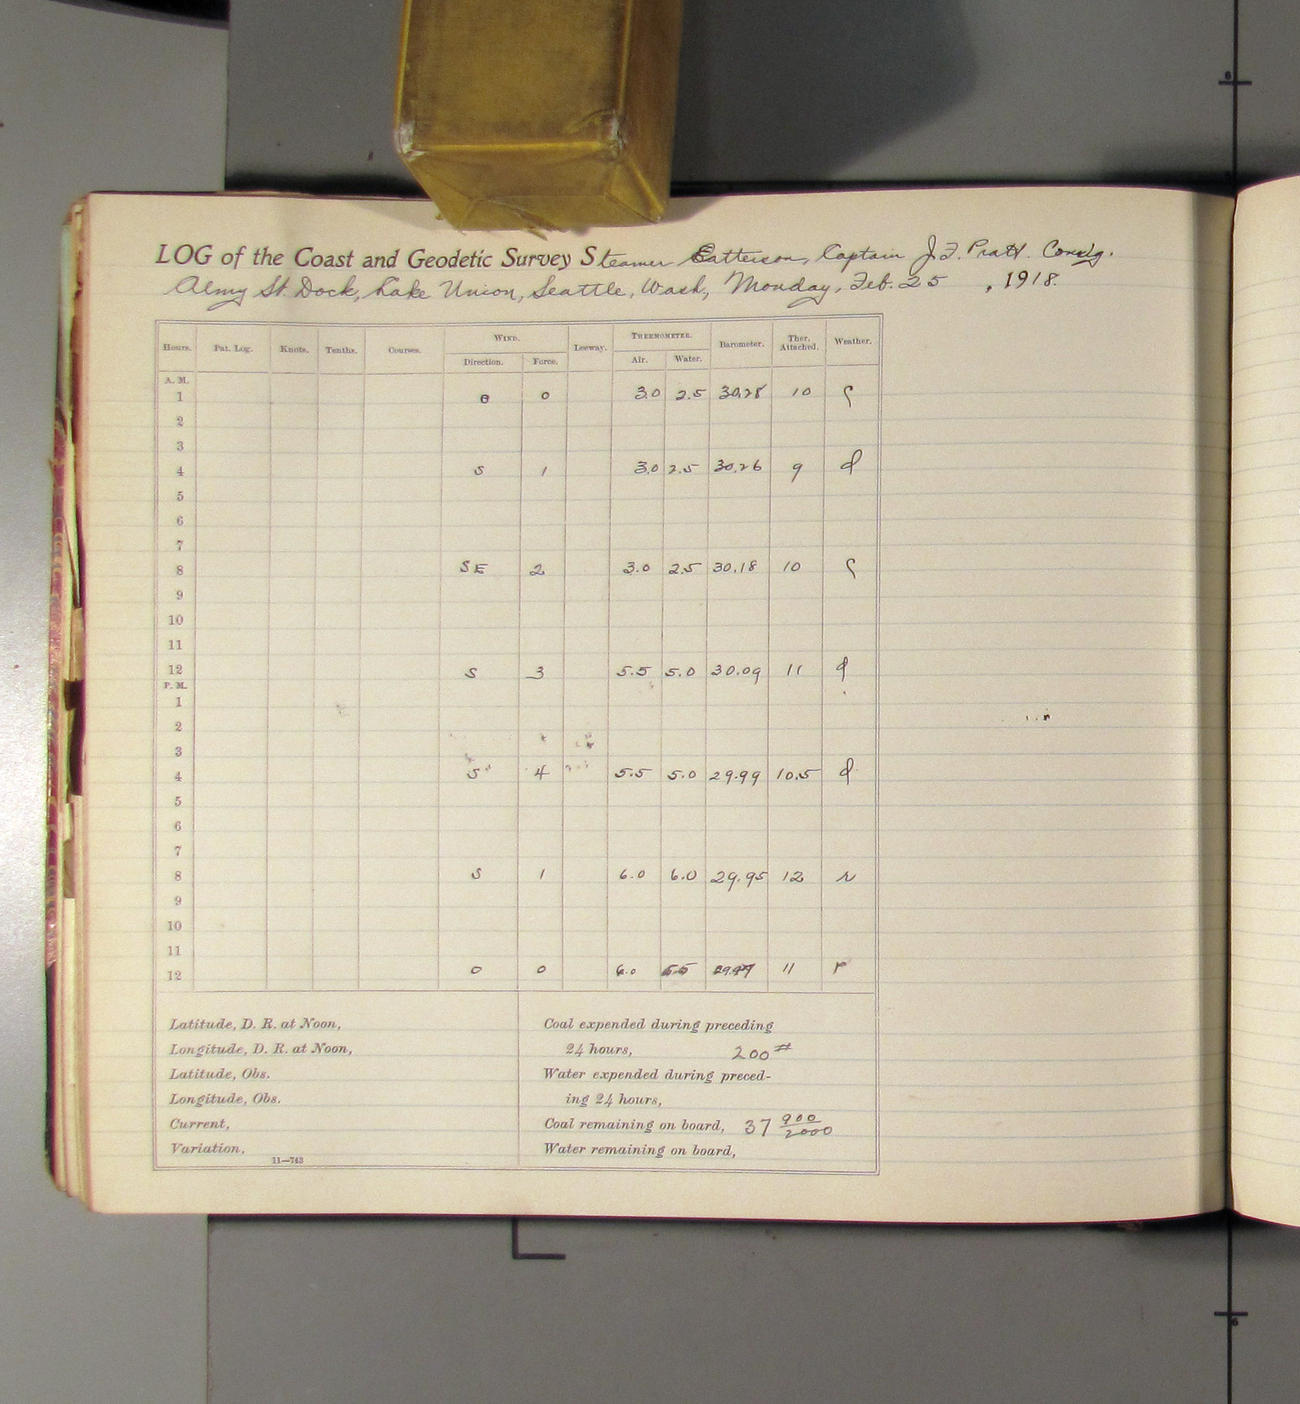 LOG of the Coast and Geodetic Survey Steamer Patterson, Captain J. F. Pratt. Comdg.
Almy St. Dock, Lake Union, Seattle, Wash., Monday, Feb. 25, 1918.
Hours. Pat. Log. Knots. Tenths. Courses. WIND. Leeway. THERMOMETER. Barometer. Ther. Attached. Weather.
Direction. Force. Air. Water.
A. M.
1 0 0 3.0 2.5 30.28 10 c
2
3
4 S 1 3.0 2.5 30.26 9 d
5
6
7
8 SE 2 3.0 2.5 30.18 10 c
9
10
11
12 S 3 5.5 5.0 30.09 11 d
P. M.
1
2
3
4 S 4 5.5 5.0 29.99 10.5 d
5
6
7
8 S 1 6.0 6.0 29.95 12 r
9
10
11
12 0 0 6.0 5.5 11 r
Latitude, D. R. at Noon, Coal expended during preceding
Longitude, D. R. at Noon, 24 hours, 200#
Latitude, Obs. Water expended during preced-
Longitude, Obs. ing 24 hours,
Current, Coal remaining on board, 37 900/2000
Variation. Water remaining on board,
11—743
6
6